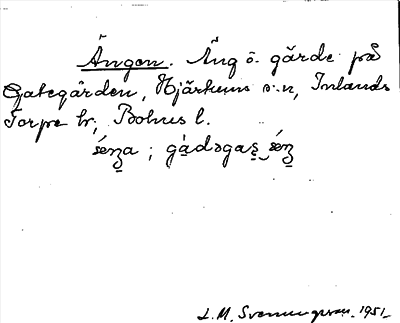 Ängen. Äng o. gärde på
Gategården, Hjärtums s:n, Inlands
Torpe hr; Bohus l.
L. M. Svenungsson. 1951